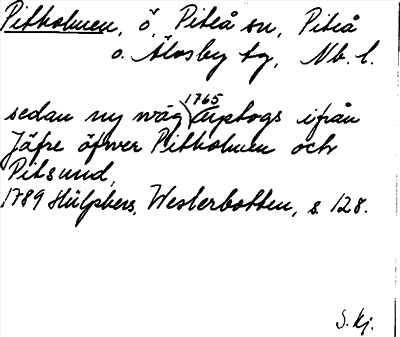 Pitholmen, ö, Piteå sn, Piteå
o. Älvsby tg, Nb. l.
sedan ny wäg 1765 uptogs ifrån
Jäfre öfwer Pitholmen och
Pitsund,
1789 Hülphers, Westerbotten, s. 128.
S. Kj.